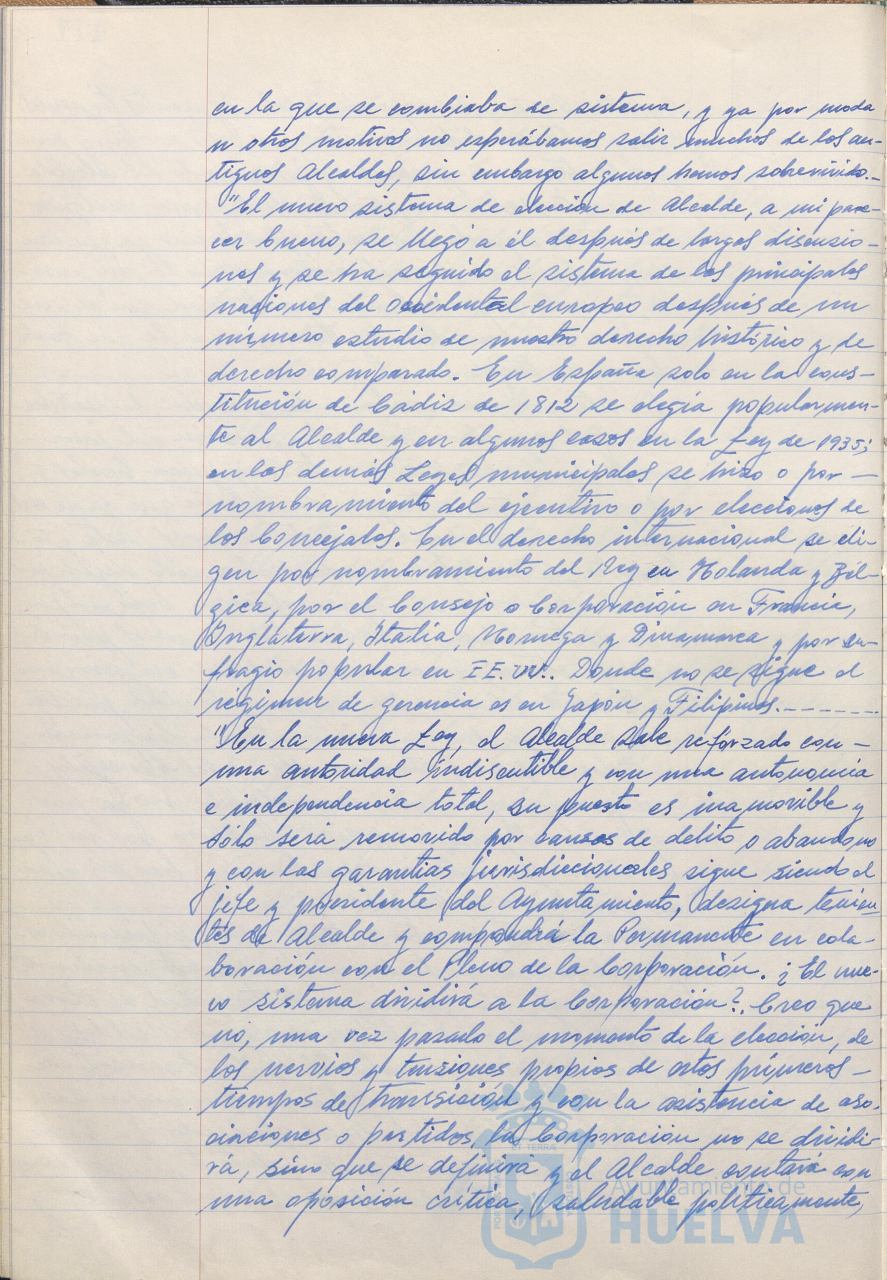 en la que se cambiaba de sistema, y ya por moda
u otros motivos no esperábamos salir muchos de los an-
tiguos Alcaldes, sin embargo algunos hemos sobrevivido.-
"El nuevo sistema de elección de Alcalde, a mi pare-
cer bueno, se llegó a él después de largas discusio-
nes y se ha seguido el sistema de las principales
naciones del occidental europeo después de un
número estudio de nuestro derecho histórico y de
derecho comparado. En España solo en la cons-
titución de Cádiz de 1812 se elegía popularmen-
te al Alcalde y en algunos casos en la Ley de 1935;
en las demás Leyes municipales se hizo o por -
nombramiento del ejecutivo o por elecciones de
los Concejales. En el derecho internacional se eli-
gen por nombramiento del Rey en Holanda y Bél-
gica, por el Consejo o Corporación en Francia,
Inglaterra, Italia, Noruega y Dinamarca y por su-
fragio popular en EE.UU.. Donde no se sigue el
régimen de gerencia es en Japón y Filipinas.-------
"En la nueva Ley, el Alcalde sale reforzado con -
una autoridad indiscutible y con una autonomía
e independencia total, su puesto es inamovible y
sólo será removido por causas de delito o abandono
y con las garantías jurisdiccionales sigue siendo el
jefe y presidente del Ayuntamiento, designa tenien-
tes de Alcalde y compondrá la Permanente en cola-
boración con el Pleno de la Corporación. ¿El nue-
vo sistema dividirá a la Corporación?. Creo que
no, una vez pasado el momento de la elección, de
los nervios y tensiones propios de estos primeros -
tiempos de transición y con la asistencia de aso-
ciaciones o partidos, la Corporación no se dividi-
rá, sino que se definirá y el Alcalde contará con
una oposición crítica, saludable políticamente,
Ayuntamiento de
HUELVA